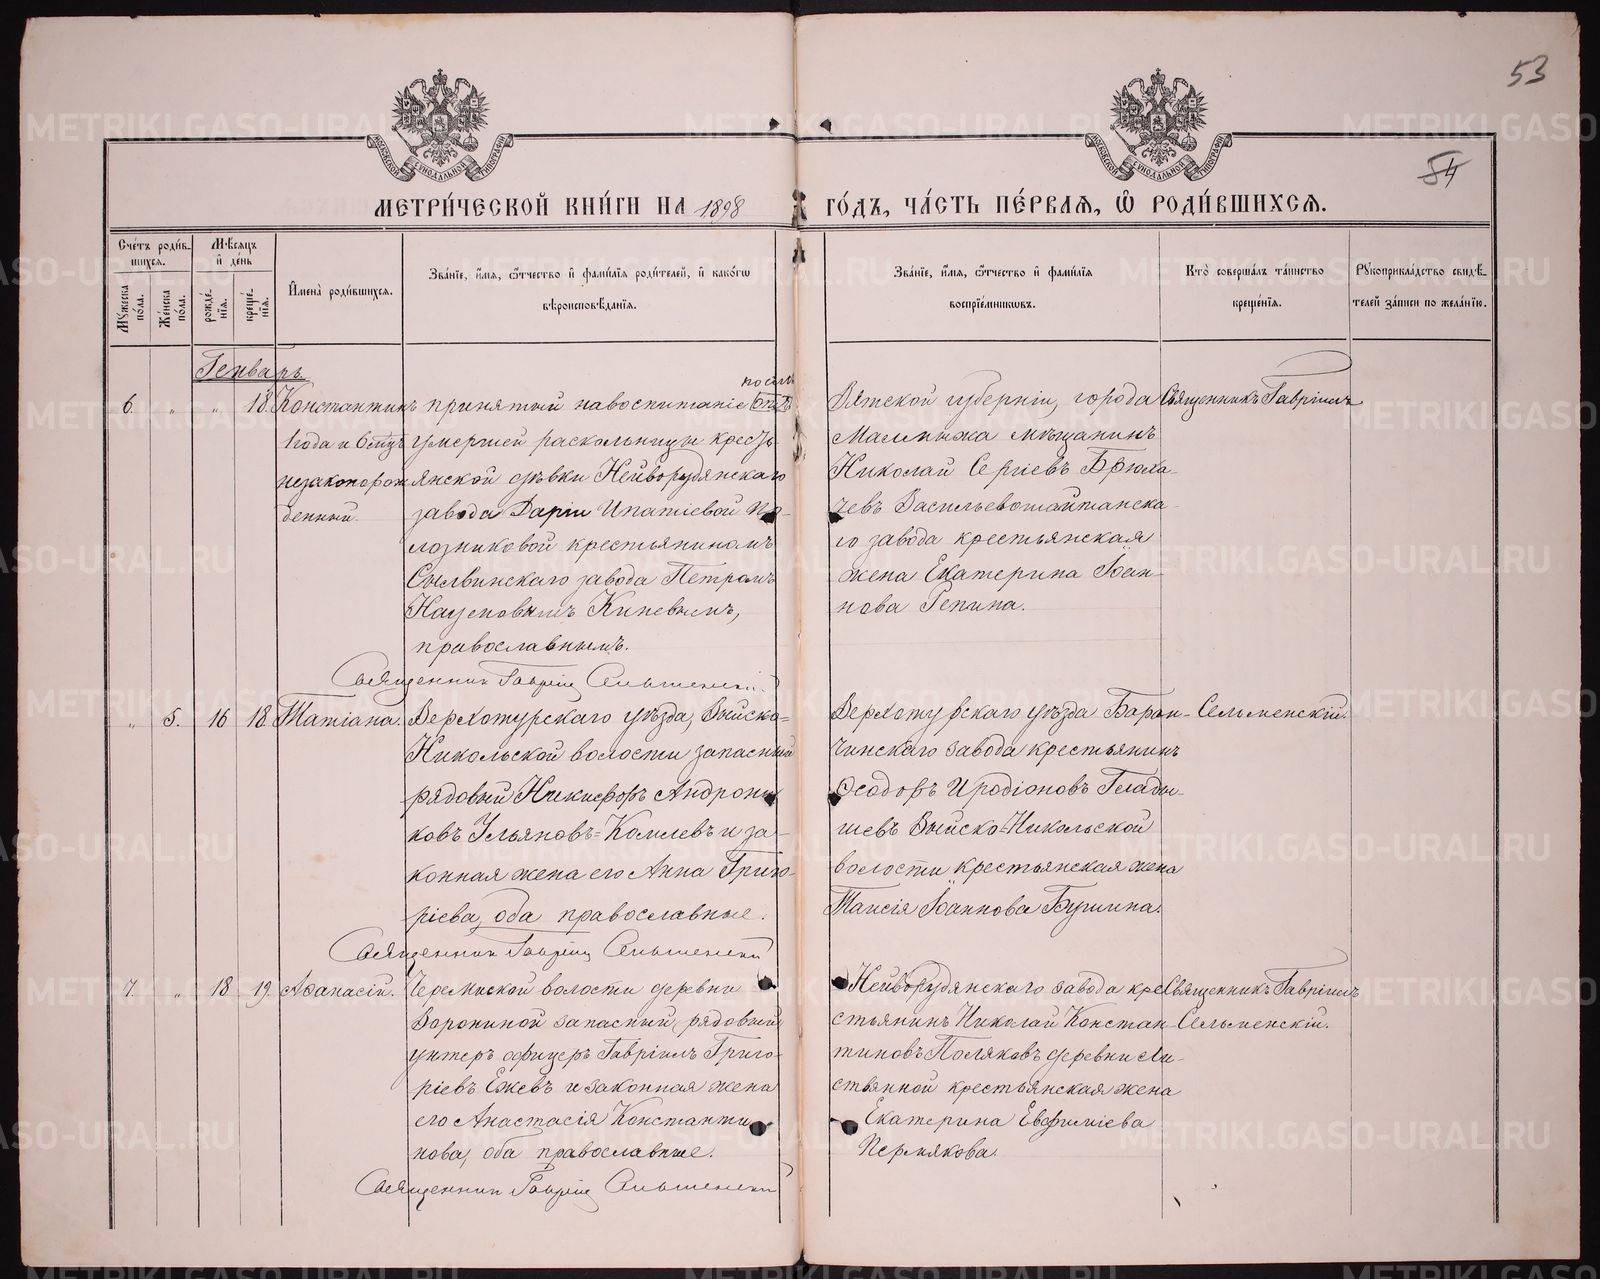 53
54
МЕТРИ́ЧЕСКОЙ КНИ́ГИ НА 1898 ГО́ДЪ, ЧА́СТЬ ПЕ́РВАЯ, Ѡ РОДИ́ВШИХСЯ.
Сче́тъ роди́вшихся.
Му́жеска по́ла.
Же́нска по́ла.
Мѣ́сяцъ и де́нь
рожде́нія.
креще́нія.
Имена̀ роди́вшихся.
Зва́ніе, и́мя, ѻ́тчество и фами́лія роди́телей, и како́гѡ
вѣроисповѣ́данія.
Зва́ніе, и́мя, ѻ́тчество и фами́лія
воспріе́мниковъ.
Кто̀ соверша́лъ та́инство
креще́нія.
Рукоприкла́дство свидѣ́телей за́писи по жела́нію.
Генварь
6. " " 18. Константинъ
1 года и 6 мцъ
незаконорож
денный.
послѣ
принятый на воспитаніе отъ
умершей раскольницы кресть
янской дѣвки Нейворудянскаго
завода Даріи Ипатіевой По-
лозниковой крестьяниномъ
Сылвинскаго завода Петромъ
Наумовымъ Киневымъ,
православнымъ.
Священникъ Гавріилъ Сельменскій.
Вятской губерніи, города
Малмыжа мѣщанинъ
Николай Сергіевъ Брюха-
чевъ Васильевошайтанска-
го завода крестьянская
жена Екатерина Іоан-
нова Репина.
Священникъ Гавріилъ
" 5. 16 18 Татіана.
Верхотурскаго уѣзда, Выйско-
Никольской волости запасный
рядовый Никифоръ Андрони
ковъ Ульяновъ=Комлевъ и за-
конная жена его Анна Григо-
ріева, оба православные.
Священникъ Гавріилъ Сельменскій
Верхотурскаго уѣзда Баран-
чинскаго завода крестьянинъ
Ѳеодоръ Иродіоновъ Глады-
шевъ Выйско-Никольской
волости крестьянская жена
Таисія Іоаннова Бушина.
Сельменскій.
7. " 18 19. Аѳанасій.
Черемиской волости деревни
Ворониной запасный рядовый
унтеръ офицеръ Гавріилъ Григо-
ріевъ Ежевъ и законная жена
его Анастасія Константи
нова, оба православные.
Священникъ Гавріилъ Сельменскій
Нейворудянскаго завода кре
стьянинъ Николай Констан-
тиновъ Поляковъ деревни Ли-
ствянной крестьянская жена
Екатерина Евфиміева
Пермякова.
Священникъ Гавріилъ
Сельменскій.